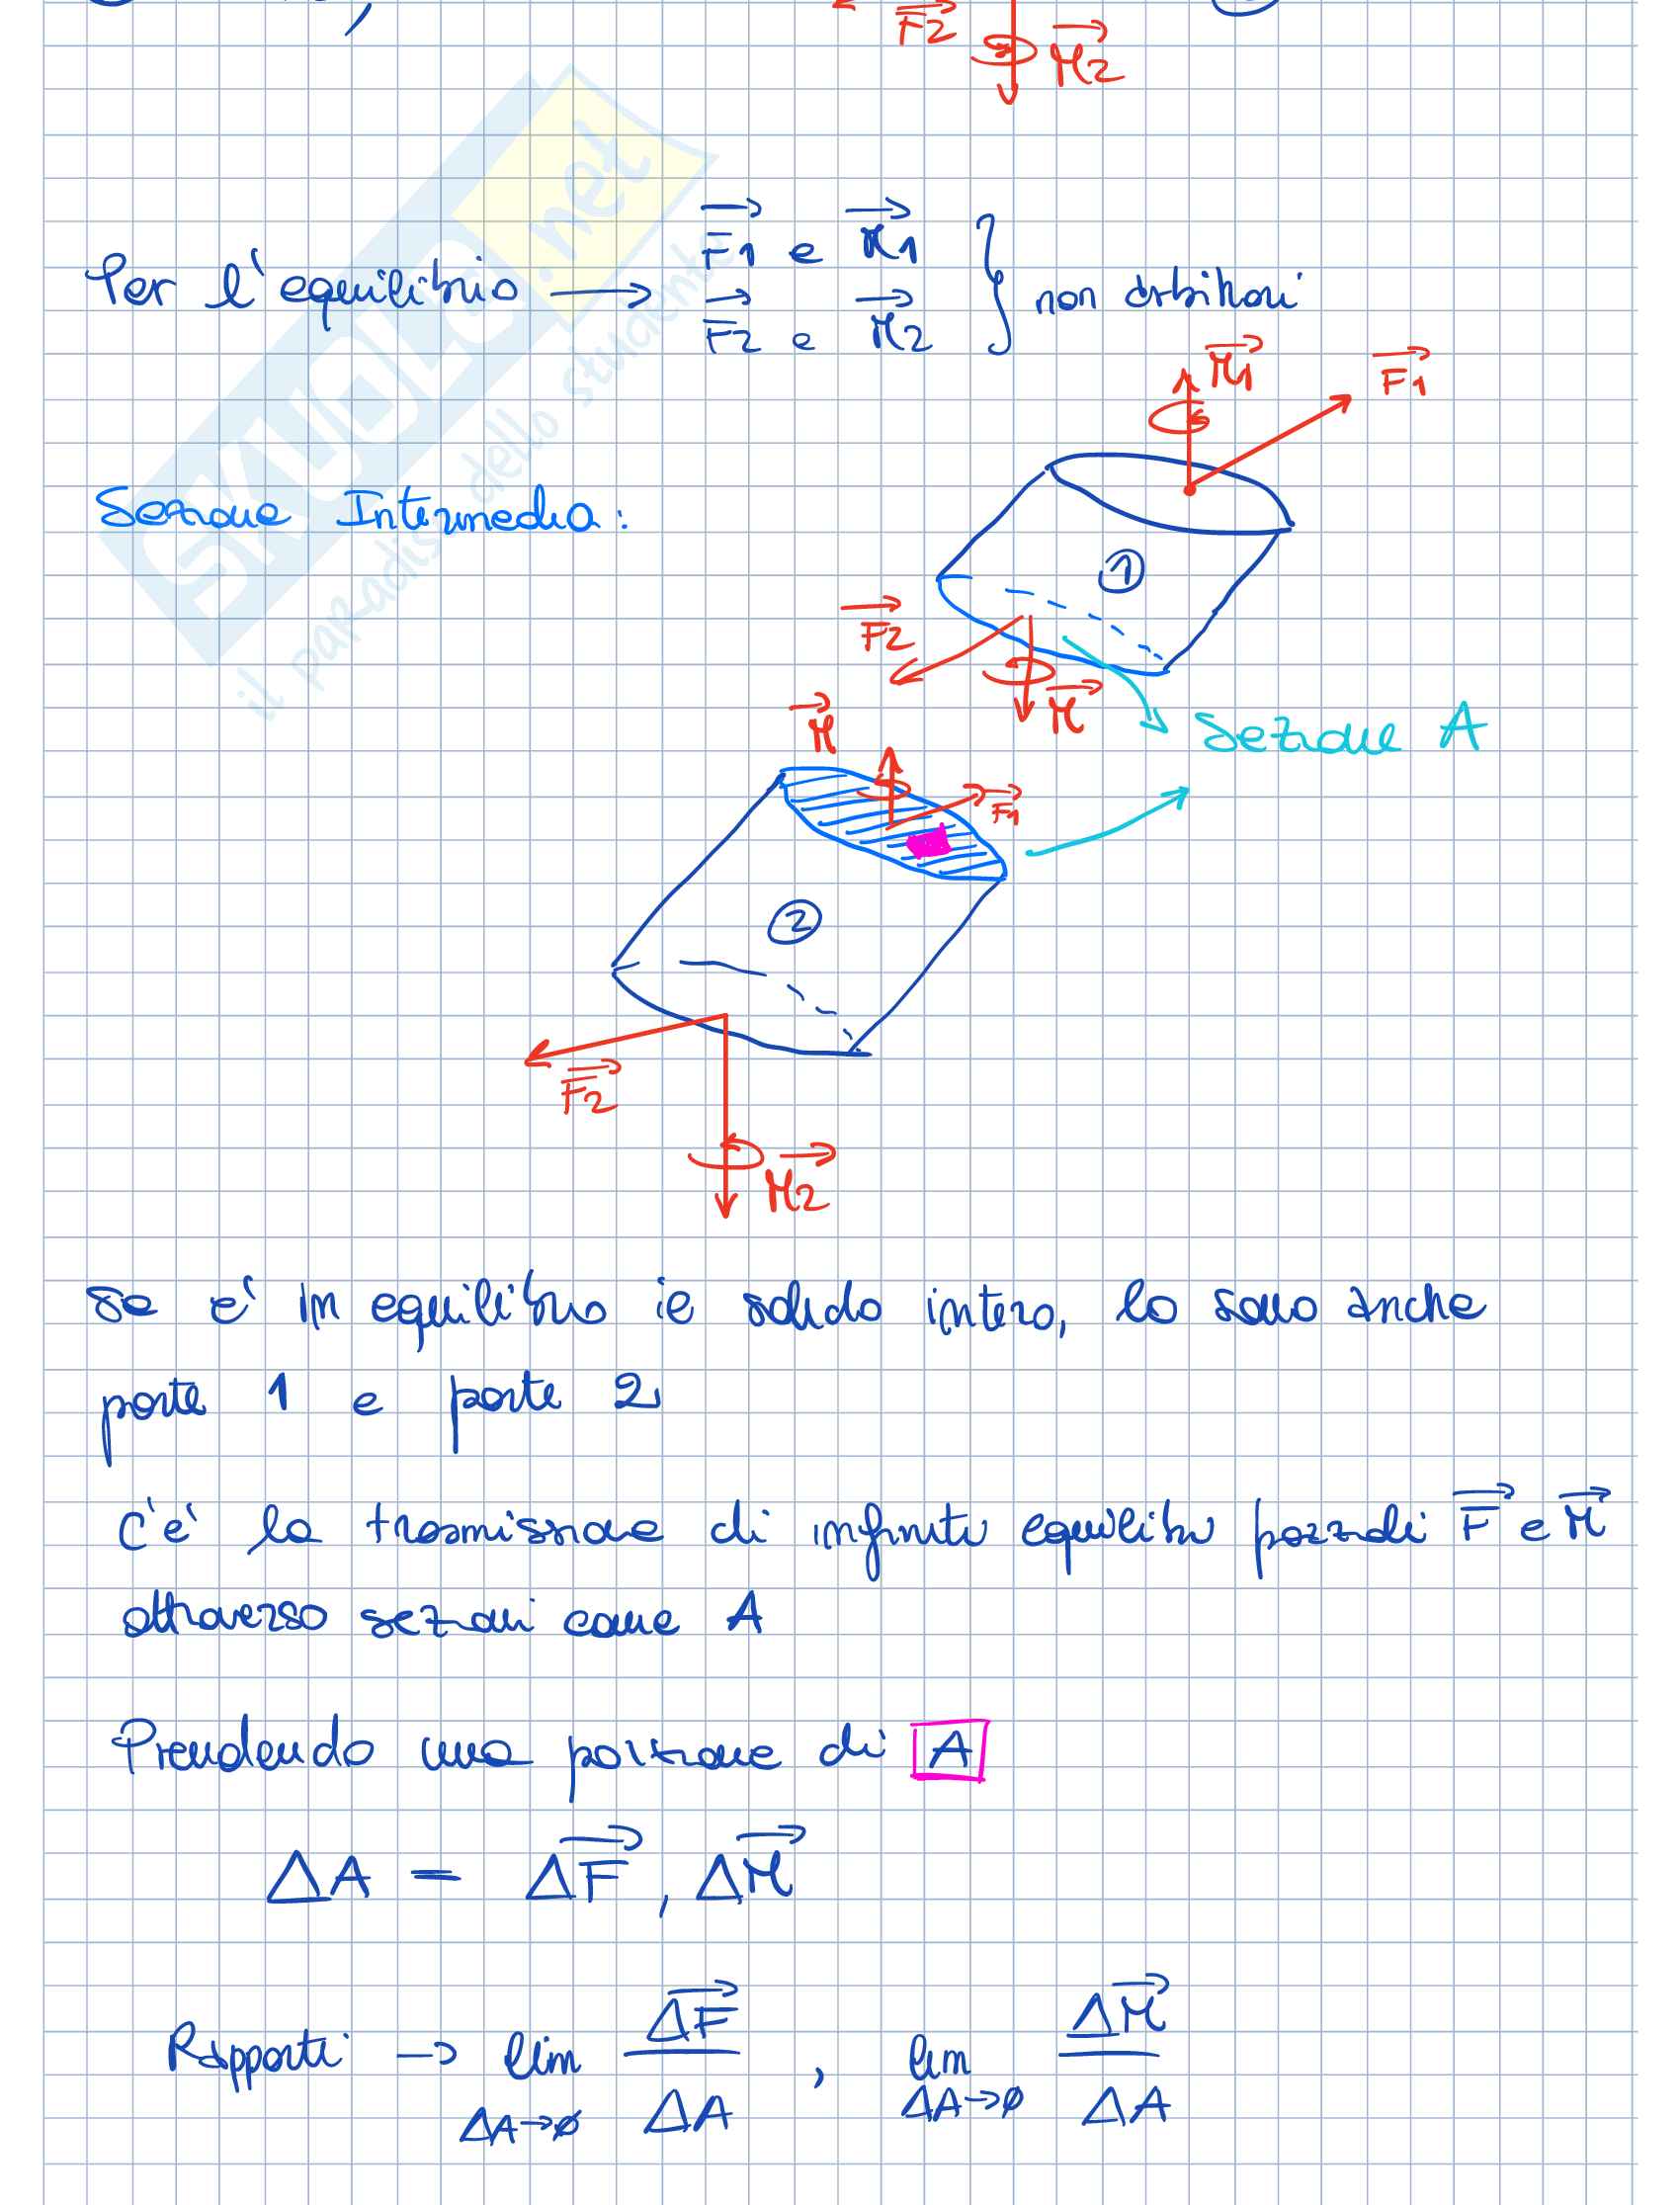 F2 M2
SKUOLA.net
il paradiso dello studente
F1 e M1
Per l'equilibrio → F2 e M2 } non arbitrari
M1 F1
Sezione Intermedia:
1
F2
M
M
Sezione A
F1
2
F2
M2
se e' in equilibrio il solido intero, lo sono anche
parte 1 e parte 2
C'e' la trasmissione di infiniti equilibri parziali F e M
attraverso sezioni come A
Prendendo una porzione di A
ΔA = ΔF, ΔM
Rapporti → lim ΔA→0 ΔF/ΔA, lim ΔA→0 ΔM/ΔA